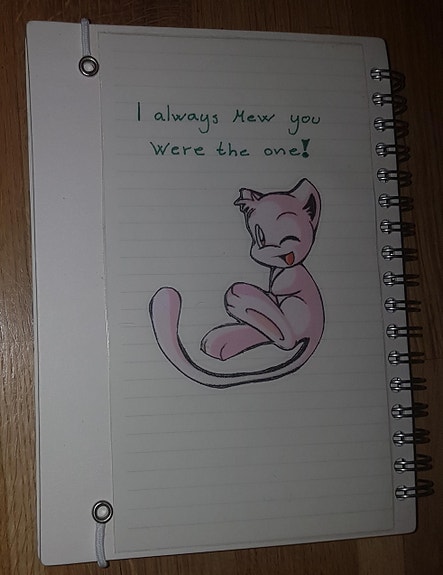 I always Mew you
Were the one!